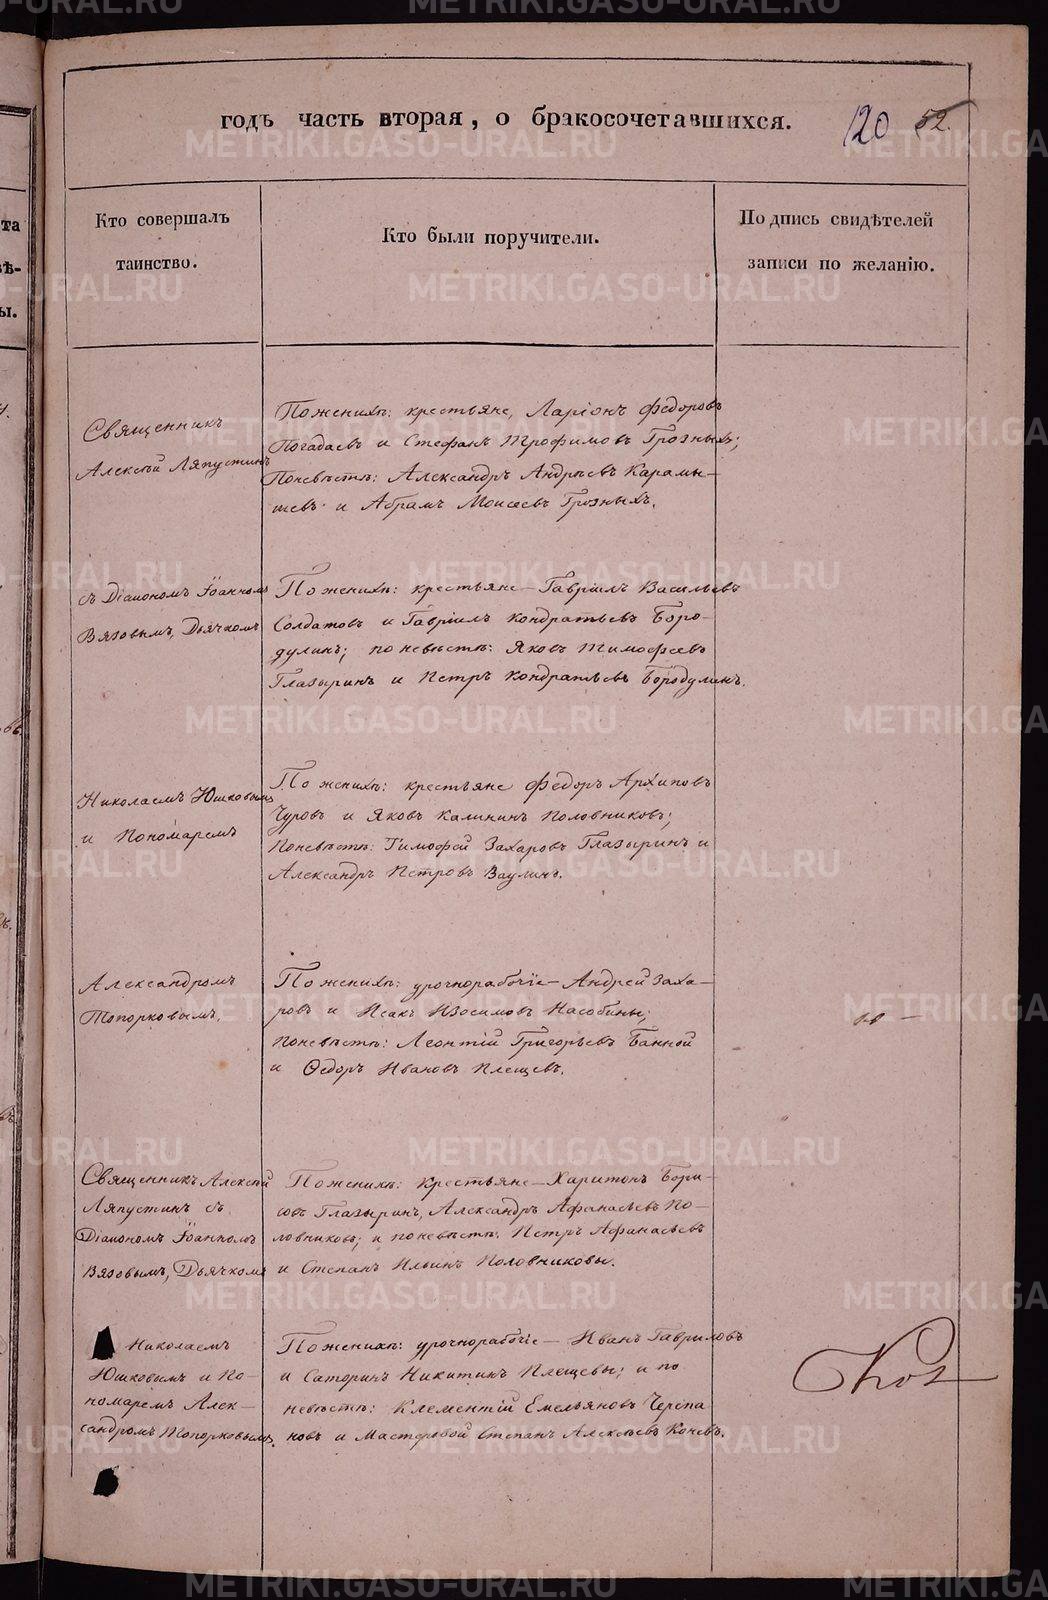 годъ часть вторая, о бракосочетавшихся.
120 52.
Кто совершалъ
таинство.
Кто были поручители.
Подпись свидѣтелей
записи по желанію.
Священникъ
Алексѣй Ляпустинъ
По женихѣ: крестьяне, Ларіонъ Федоровъ
Погадаевъ и Стефанъ Трофимовъ Грозныхъ;
По невѣстѣ: Александръ Андреевъ Карамы-
шевъ и Абрамъ Моисеевъ Грозныхъ.
съ Діакономъ Іоанномъ
Вязовымъ, Дьячкомъ
По женихѣ: крестьяне – Гавріилъ Васильевъ
Солдатовъ и Гавріилъ Кондратьевъ Боро-
дулинъ; по невѣстѣ: Яковъ Тимофеевъ
Глазыринъ и Петръ Кондратьевъ Бородулинъ.
Николаемъ Юшковымъ
и Пономаремъ
По женихѣ: крестьяне Федоръ Архиповъ
Чуровъ и Яковъ Калининъ Половниковъ;
По невѣстѣ: Тимофей Захаровъ Глазыринъ и
Александръ Петровъ Ваулинъ.
Александромъ
Топорковымъ.
По женихѣ: урочнорабочіе – Андрей Заха-
ровъ и Исакъ Изосимовъ Насобины;
по невѣстѣ: Леонтій Григорьевъ Банной
и Ѳедоръ Ивановъ Плещевъ.
Священникъ Алексѣй
Ляпустинъ съ
Діакономъ Іоанномъ
Вязовымъ, Дьячкомъ
По женихѣ: крестьяне – Харитонъ Бори-
совъ Глазыринъ, Александръ Афанасьевъ По-
ловниковъ; и по невѣстѣ: Петръ Афанасьевъ
и Степанъ Ильинъ Половниковы.
Николаемъ
Юшковымъ и По-
номаремъ Алек-
сандромъ Топорковымъ.
По женихѣ: урочнорабочіе – Иванъ Гавриловъ
и Саторинъ Никитинъ Плещевы; и по
невѣстѣ: Клементій Емельяновъ Черепа
новъ и Мастеровой Степанъ Алексѣевъ Коневъ.
METRIKI.GASO-URAL.RU